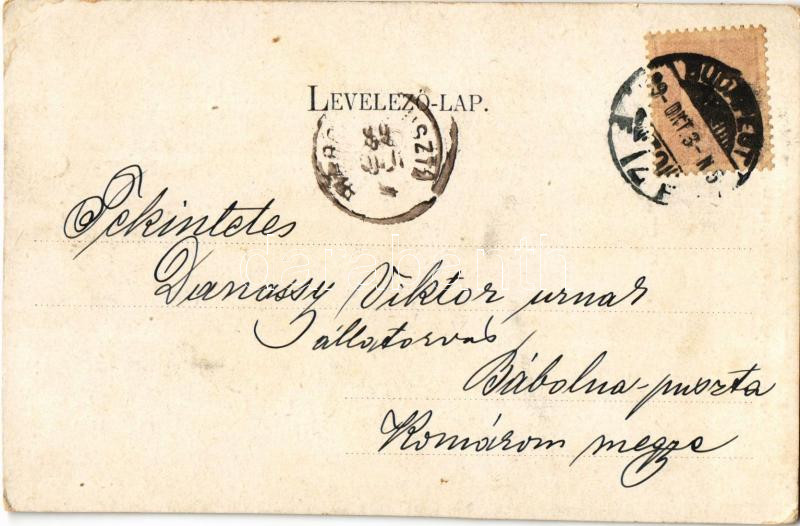 LEVELEZŐ-LAP.
BUDAPEST
Tekintetes
Danassy Viktor urnak
állatorvos
Bábolna-puszta
Komárom megye
darabanth